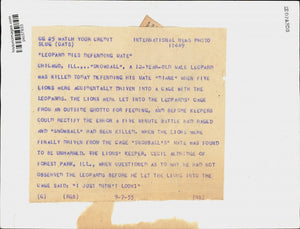 GG 25 WATCH YOUR CREDIT INTERNATIONAL NEWS PHOTO
SLUG (CATS)
"LEOPARD DIES DEFENDING MATE"
CHICAGO, ILL.,..."SNOWBALL", A 12-YEAR-OLD MALE LEOPARD
WAS KILLED TODAY DEFENDING HIS MATE WHEN FIVE
LIONS WERE ACCIDENTALLY DRIVEN INTO A CAGE WITH THE
LEOPARDS. THE LIONS WERE LET INTO THE LEOPARDS' CAGE
FROM AN OUTSIDE GROTTO FOR FEEDING, AND BEFORE KEEPERS
COULD RECTIFY THE ERROR A FIVE MINUTE BATTLE HAD RAGED
AND "SNOWBALL" HAD BEEN KILLED. WHEN THE LIONS WERE
FINALLY DRIVEN FROM THE CAGE "SNOWBALL'S" MATE WAS FOUND
TO BE UNHARMED. THE LIONS' KEEPER, CECIL ALDRIDGE OF
FOREST PARK, ILL., WHEN QUESTIONED AS TO WHY HE HAD NOT
OBSERVED THE LEOPARDS BEFORE HE LET THE LIONS INTO THE
CAGE SAID: "I JUST DIDN'T LOOK!"
9-7-55